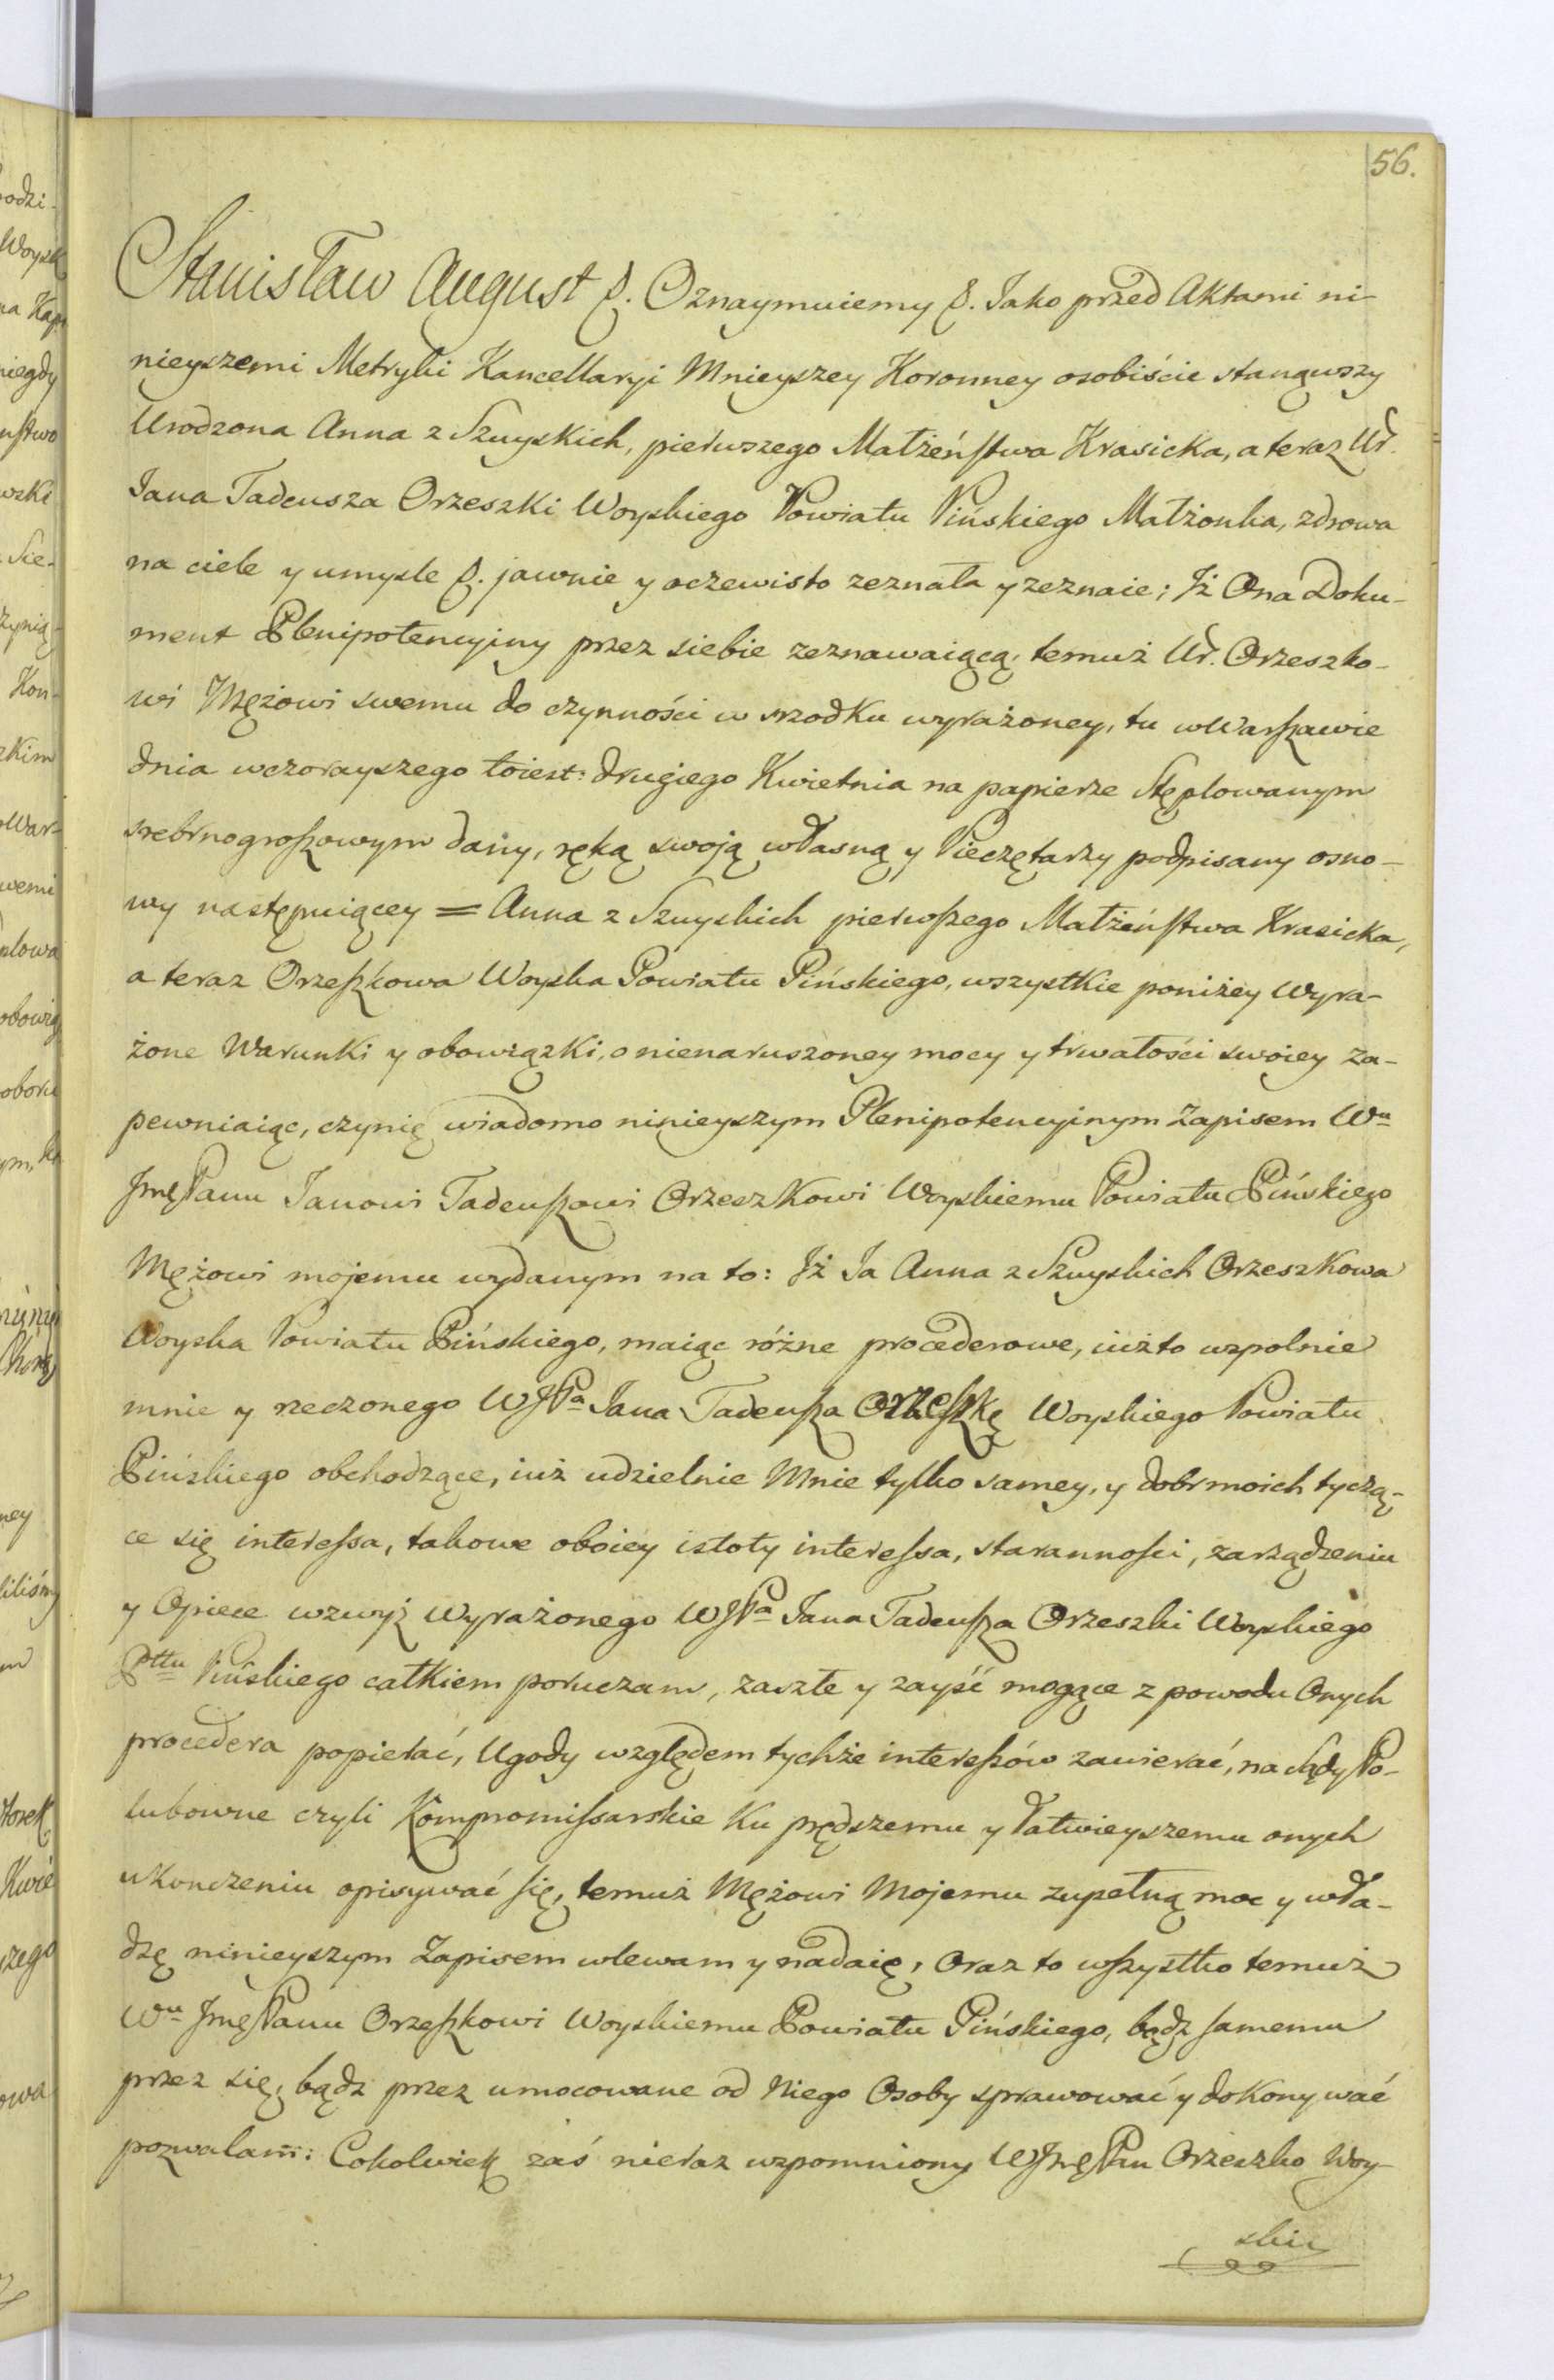 56.
Stanisław August &. Oznaymuiemy &. Jako przed Aktami ni-
nieyszemi Metryki Kancellaryi Mnieyszey Koronney osobiście stanąwszy
Urodzona Anna z Szuyskich, pierwszego Małżeństwa Krasicka, a teraz Ur.
Jana Tadeusza Orzeszki Woyskiego Powiatu Pińskiego Małżonka, zdrowa
na ciele y umysle &. jawnie y oczewisto zeznała y zeznaie; Jż Ona Doku-
ment Plenipotencyjny przez siebie zeznawaiącą, temuż Ur. Orzeszko-
wi Mężowi swemu do czynności w srzodku wyrażoney, tu w Warszawie
dnia wczorayszego toiest: drugiego Kwietnia na papierze Stęplowanym
srebrnogroszowym dany, ręką swoją własną y Pieczętarzy podpisany osno-
wy następuiącey = Anna z Szuyskich pierwszego Małżeństwa Krasicka,
a teraz Orzeszkowa Woyska Powiatu Pińskiego, wszystkie poniżey wyra-
żone Warunki y obowiązki, o nienaruszoney mocy y trwałości swoiey za-
pewniaiąc, czynię wiadomo ninieyszym Plenipotencyinym Zapisem Wu
Jmę Panu Janowi Tadeuszowi Orzeszkowi Woyskiemu Powiatu Pińskiego
Mężowi mojemu wydanym na to: Jż Ja Anna z Szuyskich Orzeszkowa
Woyska Powiatu Pińskiego, maiąc różne procederowe, iużto wspolnie
mnie y rzeczonego WJPa Jana Tadeusza Orzeszkę Woyskiego Powiatu
Pińskiego obchodzące, iuż udzielnie Mnie tylko samey, y dobr moich tyczą-
ce się interessa, takowe oboiey istoty interessa, staranności, zarządzeniu
y Opiece wzwyż wyrażonego WJPa Jana Tadeusza Orzeszki Woyskiego
Pttu Pińskiego całkiem poruczam, zaszłe y zayść mogące z powodu Onych
procedera popierać, Ugody względem tychże interessów zawierać, na Sądy Po-
lubowne czyli Kompromissarskie Ku prędszemu y łatwieyszemu onych
ukonczeniu opisywać się, temuż Mężowi Mojemu zupełną moc y wła-
dzę ninieyszym Zapisem wlewam y nadaię, Oraz to wszystko temuż
Wu Jmę Panu Orzeszkowi Woyskiemu Powiatu Pińskiego, bądz samemu
przez się, bądz przez umocowane od Niego Osoby sprawować y dokonywać
pozwalam: Cokolwiek zaś nieraz wspomniony WJmę Pan Orzeszko Woy-
ski